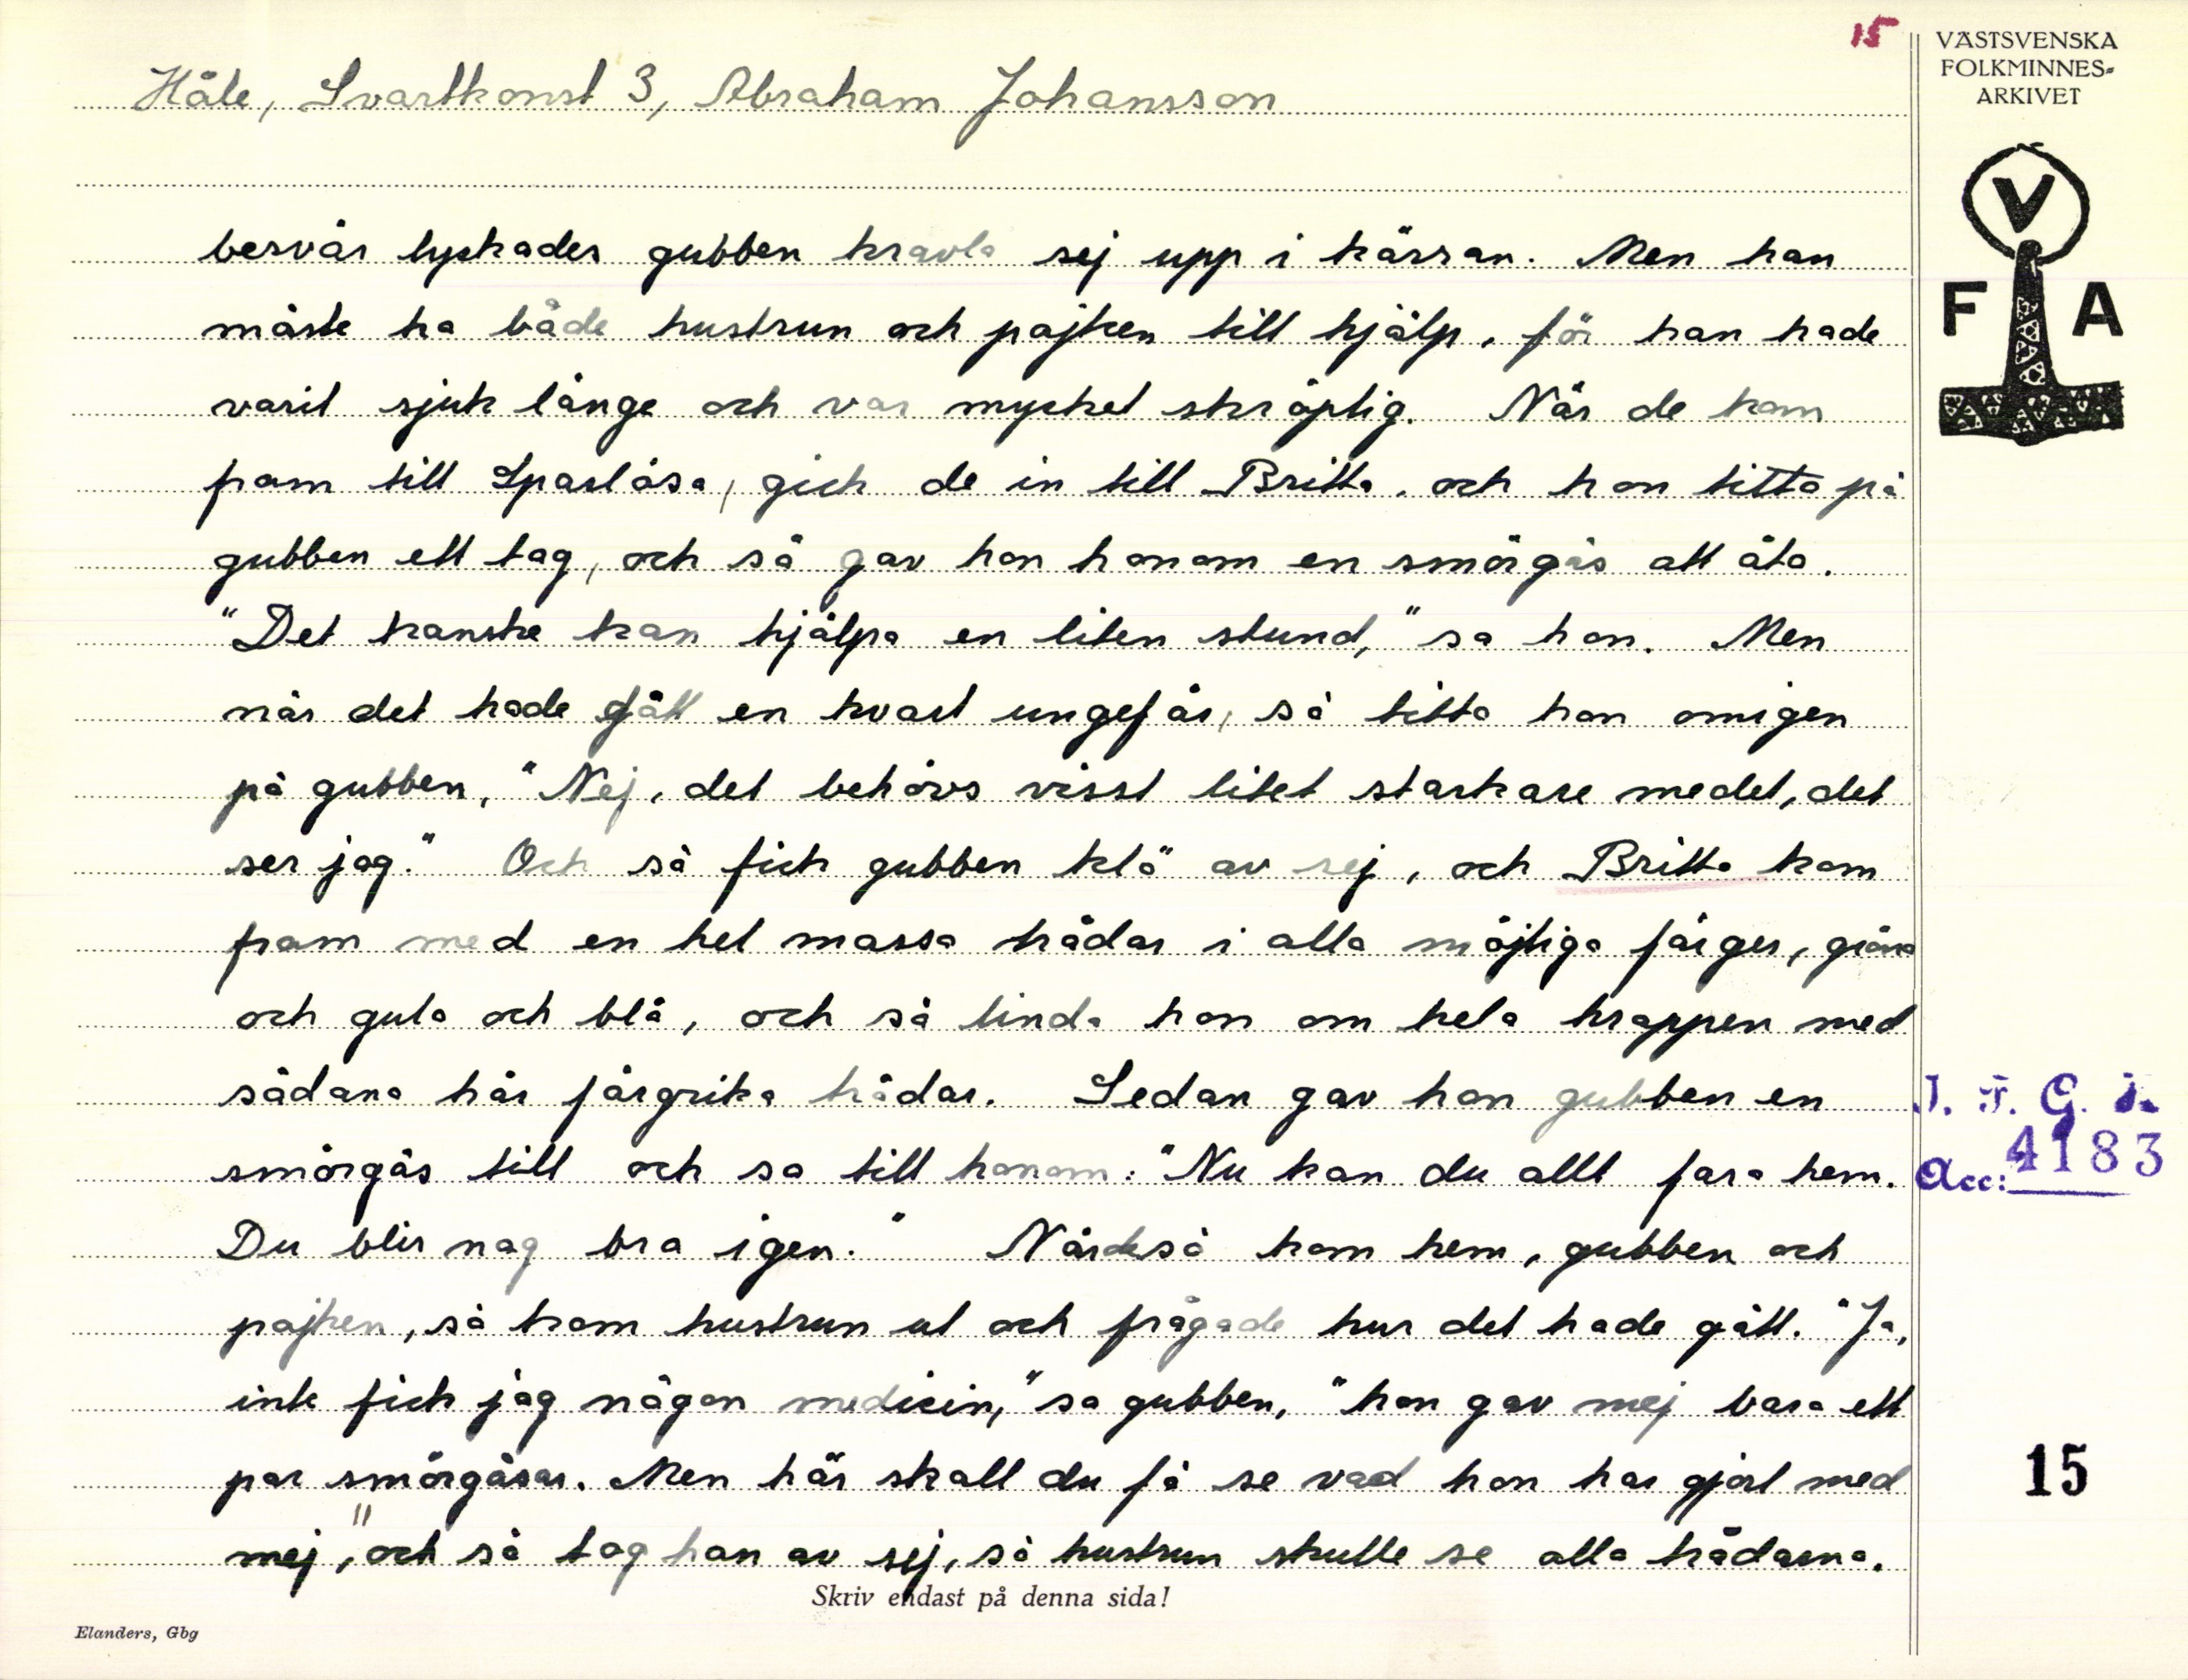 15
VÄSTSVENSKA
FOLKMINNES-
ARKIVET
Håle, Svartkonst 3, Abraham Johansson
V
F A
besvär lyckades gubben kravla sej upp i kärran. Men han
måste ha både hustrun och pojken till hjälp, för han hade
varit sjuk länge och var mycket skröplig. När de kom
fram till Sparlösa, gick de in till Britta, och hon titta på
gubben ett tag, och så gav hon honom en smörgås att äta.
"Det kanske kan hjälpa en liten stund," sa hon. Men
när det hade gått en kvart ungefär, så titta hon omigen
på gubben, "Nej, det behövs visst litet starkare medel, det
ser jag." Och så fick gubben klä av sej, och Britta kom
fram med en hel massa trådar i alla möjliga färger, gröna
och gula och blå, och så linda hon om hela kroppen med
sådana här färgrika trådar. Sedan gav hon gubben en
smörgås till och sa till honom: "Nu kan du allt fara hem.
Du blir nog bra igen." När de så kom hem, gubben och
pojken, så kom hustrun ut och frågade hur det hade gått. "Ja,
inte fick jag någon medicin," sa gubben, "hon gav mej bara ett
par smörgåsar. Men här skall du få se vad hon har gjort med
mej," och så tog han av sej, så hustrun skulle se alla trådarna.
I. F. G. H.
Acc: 4183
15
Skriv endast på denna sida!
Elanders, Gbg